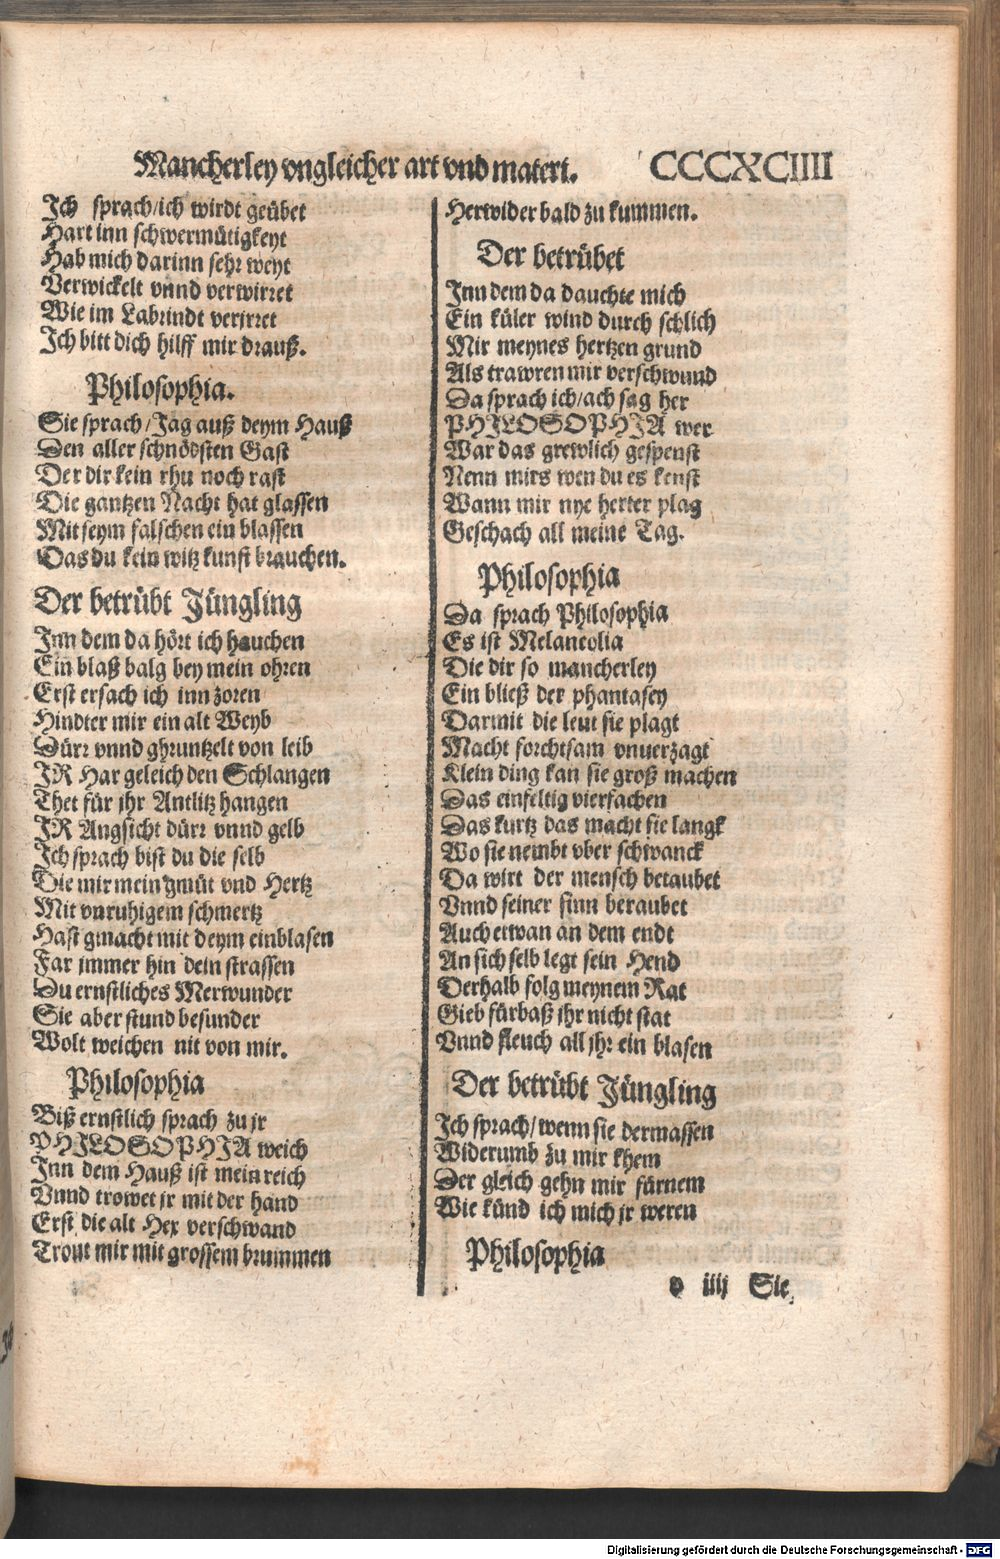 Mancherley vngleicher art vnd materi. CCCXCIIII
Ich sprach/ich wirdt geübet
Hart inn schwermütigkeyt
Hab mich darinn sehr weyt
Verwickelt vnnd verwirret
Wie im Labrindt verirret
Ich bitt dich hilff mir drauß.
Philosophia.
Sie sprach/Jag auß deym Hauß
Den aller schnödsten Gast
Der dir kein rhu noch rast
Die gantzen Nacht hat glassen
Mit seym falschen ein blassen
Das du kein witz kunst brauchen.
Der betrübt Jüngling
Inn dem da hört ich hauchen
Ein blaß balg bey mein ohren
Erst ersach ich inn zoren
Hindter mir ein alt Weyb
Dürr vnnd ghruntzelt von leib
IR Har geleich den Schlangen
Thet für jhr Antlitz hangen
IR Angsicht dürr vnnd gelb
Ich sprach bist du die selb
Die mir mein gmüt vnd Hertz
Mit vnruhigem schmertz
Hast gmacht mit deym einblasen
Far jmmer hin dein strassen
Du ernstliches Merwunder
Sie aber stund besunder
Wolt weichen nit von mir.
Philosophia
Biß ernstlich sprach zu jr
PHILOSOPHIA weich
Inn dem Hauß ist mein reich
Vnnd trowet jr mit der hand
Erst die alt Hex verschwand
Trout mir mit grossem brummen
Herwider bald zu kummen.
Der betrübet
Inn dem da dauchte mich
Ein küler wind durch schlich
Mir meynes hertzen grund
Als trawren mir verschwund
Da sprach ich/ach sag her
PHILOSOPHIA wer
War das grewlich gespenst
Nenn mirs wen du es kenst
Wann mir nye herter plag
Geschach all meine Tag.
Philosophia
Da sprach Philosophia
Es ist Melancolia
Die dir so mancherley
Ein bließ der phantasey
Darmit die leut sie plagt
Macht forchtsam vnuerzagt
Klein ding kan sie groß machen
Das einfeltig vierfachen
Das kurtz das macht sie langk
Wo sie nembt vber schwanck
Da wirt der mensch betaubet
Vnnd seiner sinn beraubet
Auch etwan an dem endt
An sich selb legt sein Hend
Derhalb folg meynem Rat
Gieb fürbaß jhr nicht stat
Vnnd fleuch all jhr ein blasen
Der betrübt Jüngling
Ich sprach/wenn sie dermassen
Widerumb zu mir khem
Der gleich gehn mir fürnem
Wie künd ich mich jr weren
Philosophia
o iiij Sie
Digitalisierung gefördert durch die Deutsche Forschungsgemeinschaft - DFG